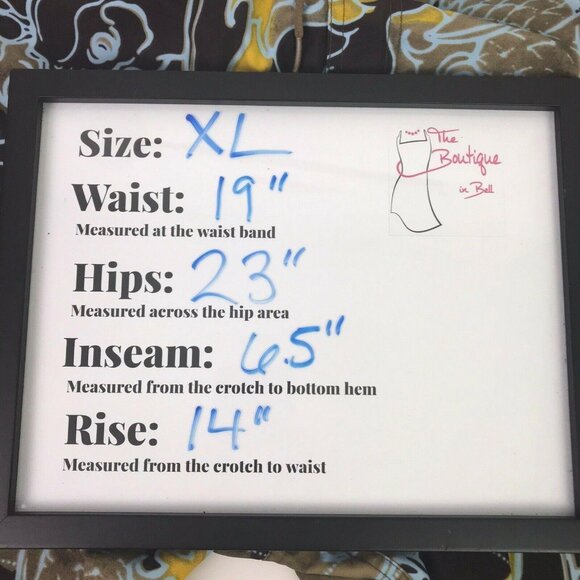 Size: XL
Waist: 19"
Measured at the waist band
Hips: 23"
Measured across the hip area
Inseam: 6.5"
Measured from the crotch to bottom hem
Rise: 14"
Measured from the crotch to waist
The
Boutique
in Bell